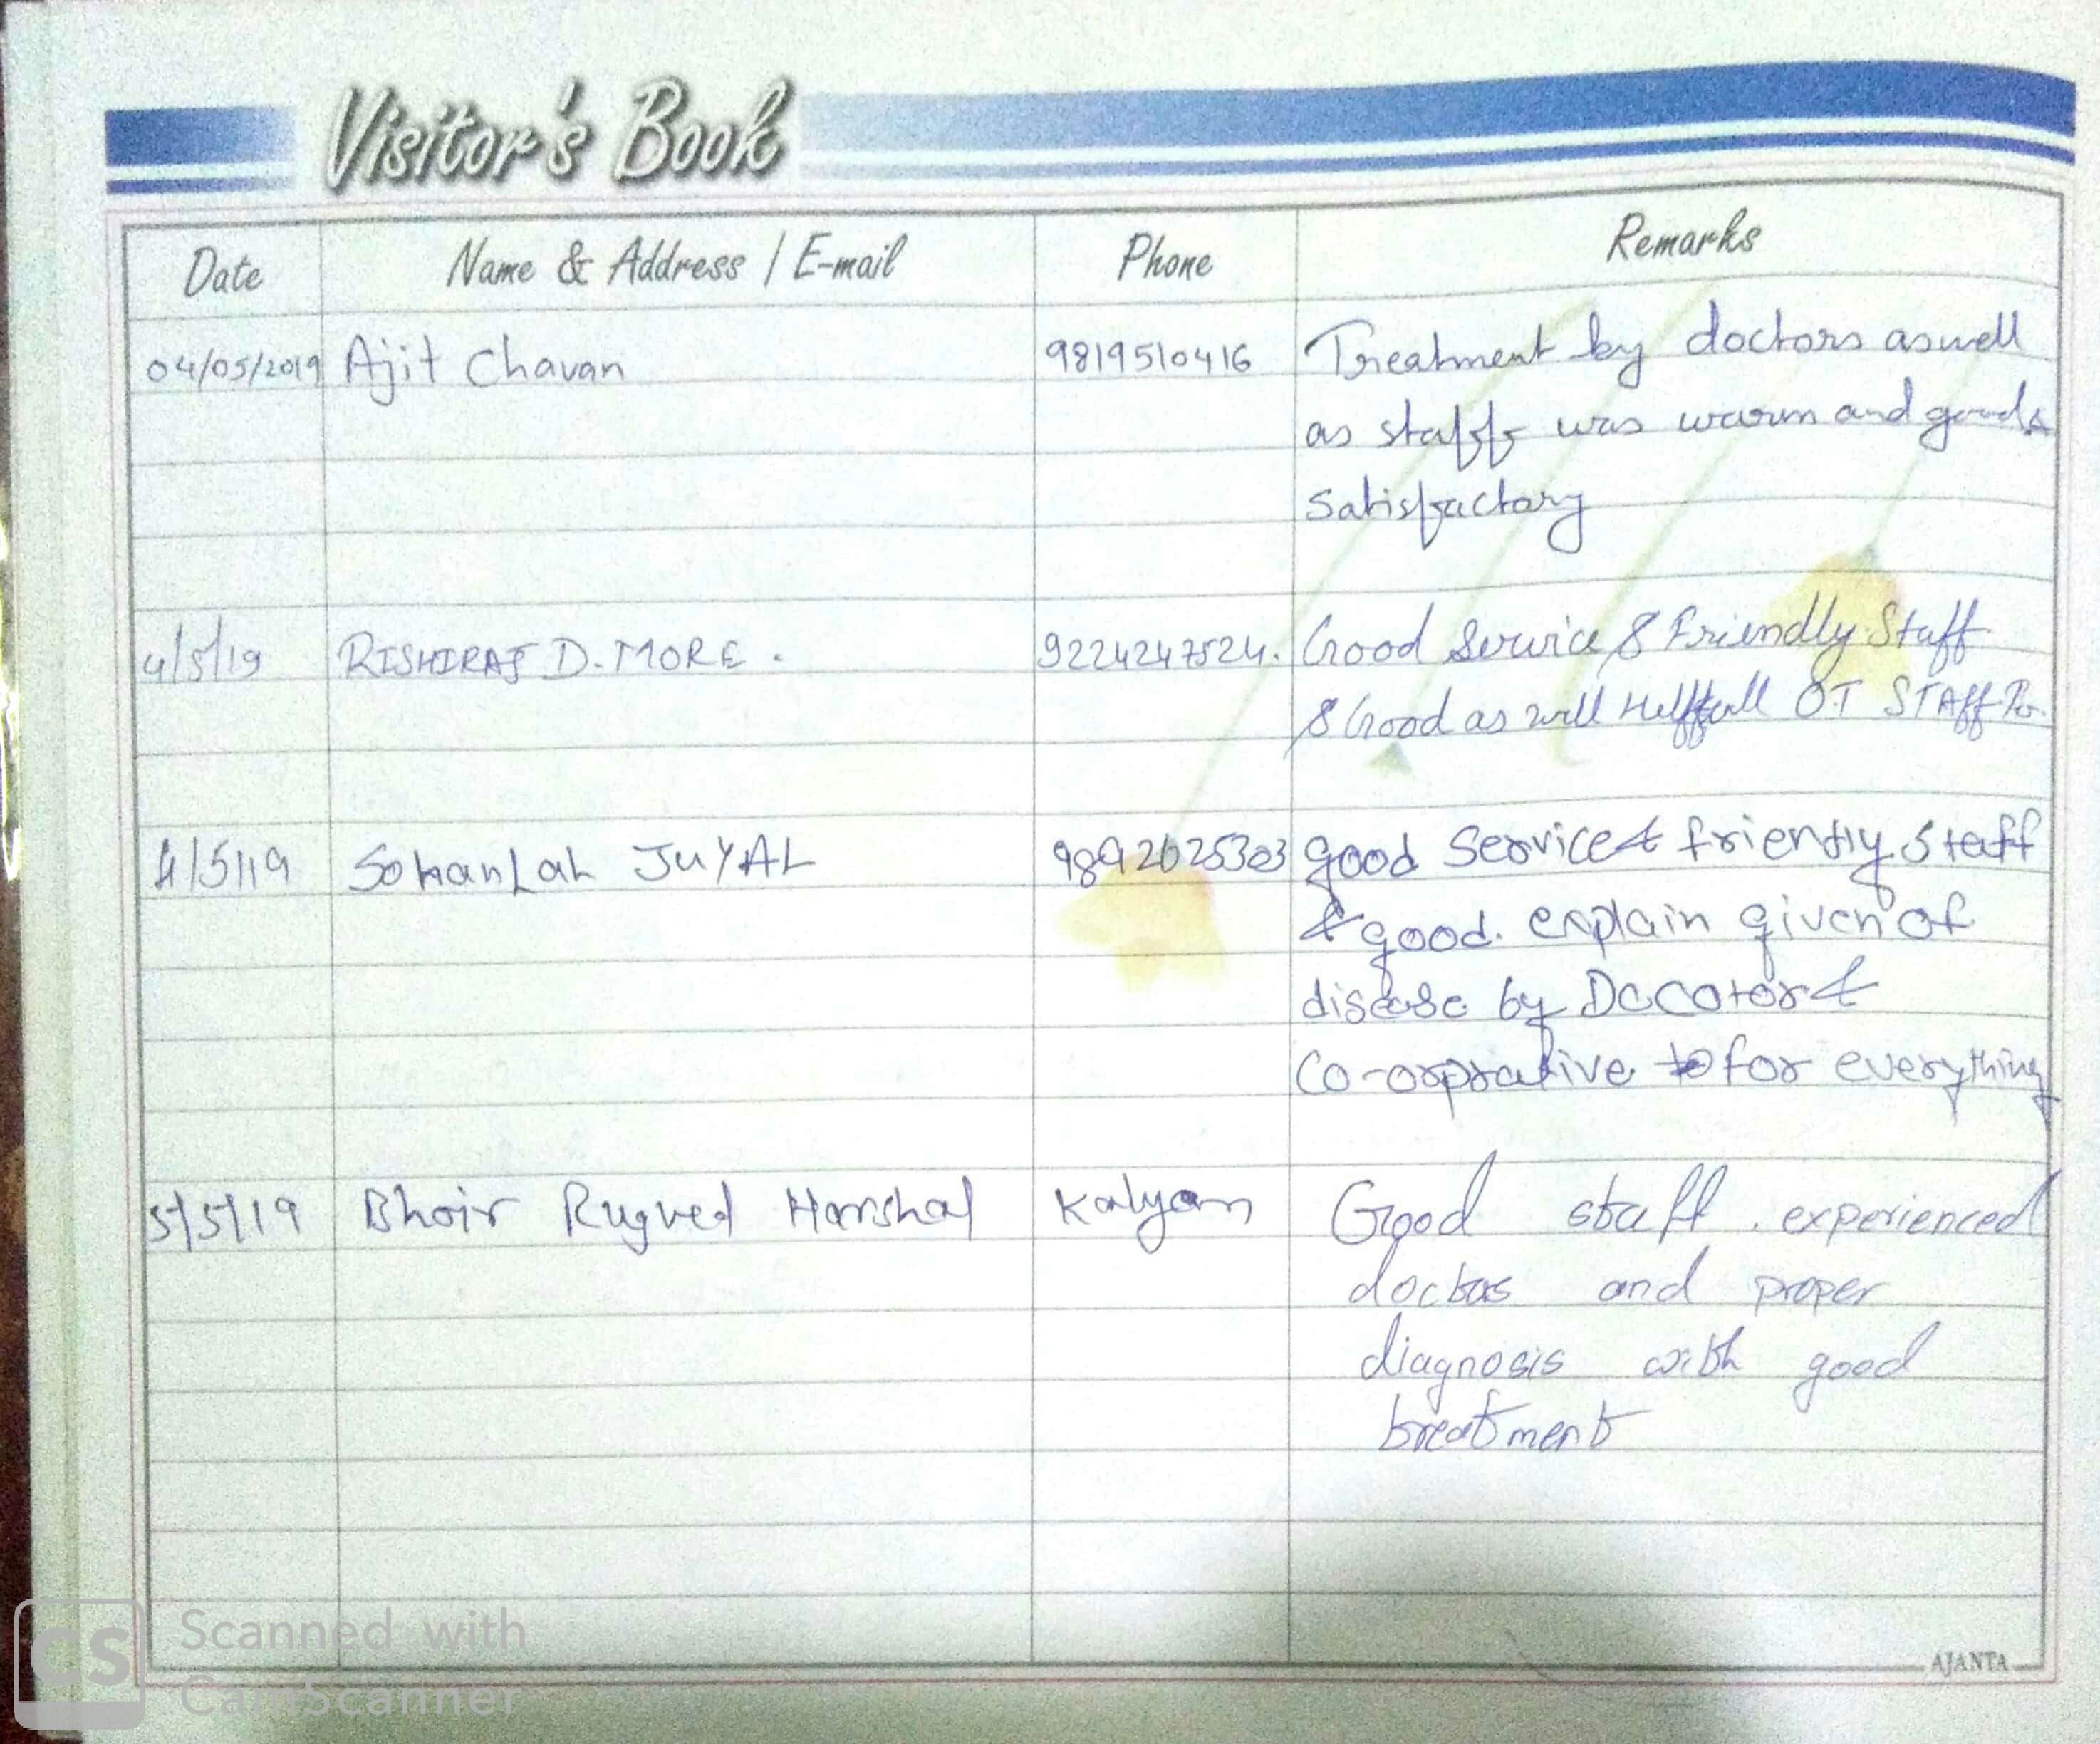 Visitor's Book
Date Name & Address / E-mail Phone Remarks
04/05/2019 Ajit Chavan 9819510416 Treatment by doctors aswell
as staff was warm and good &
satisfactory
4/5/19 RISHIRAJ D. MORE. 9224247524. Good Service & Friendly Staff
& Good as well Helffull OT STAFF
4/5/19 SohanLah JuYAL 9892025303 good Service & friendly Staff
& good. explain given of
disease by Docotor &
Co-orprative for everything
5/5/19 Bhoir Rugved Harshal Kalyan Good staff. experienced
doctos and proper
diagnosis with good
treatment
AJANTA
CS Scanned with
CamScanner